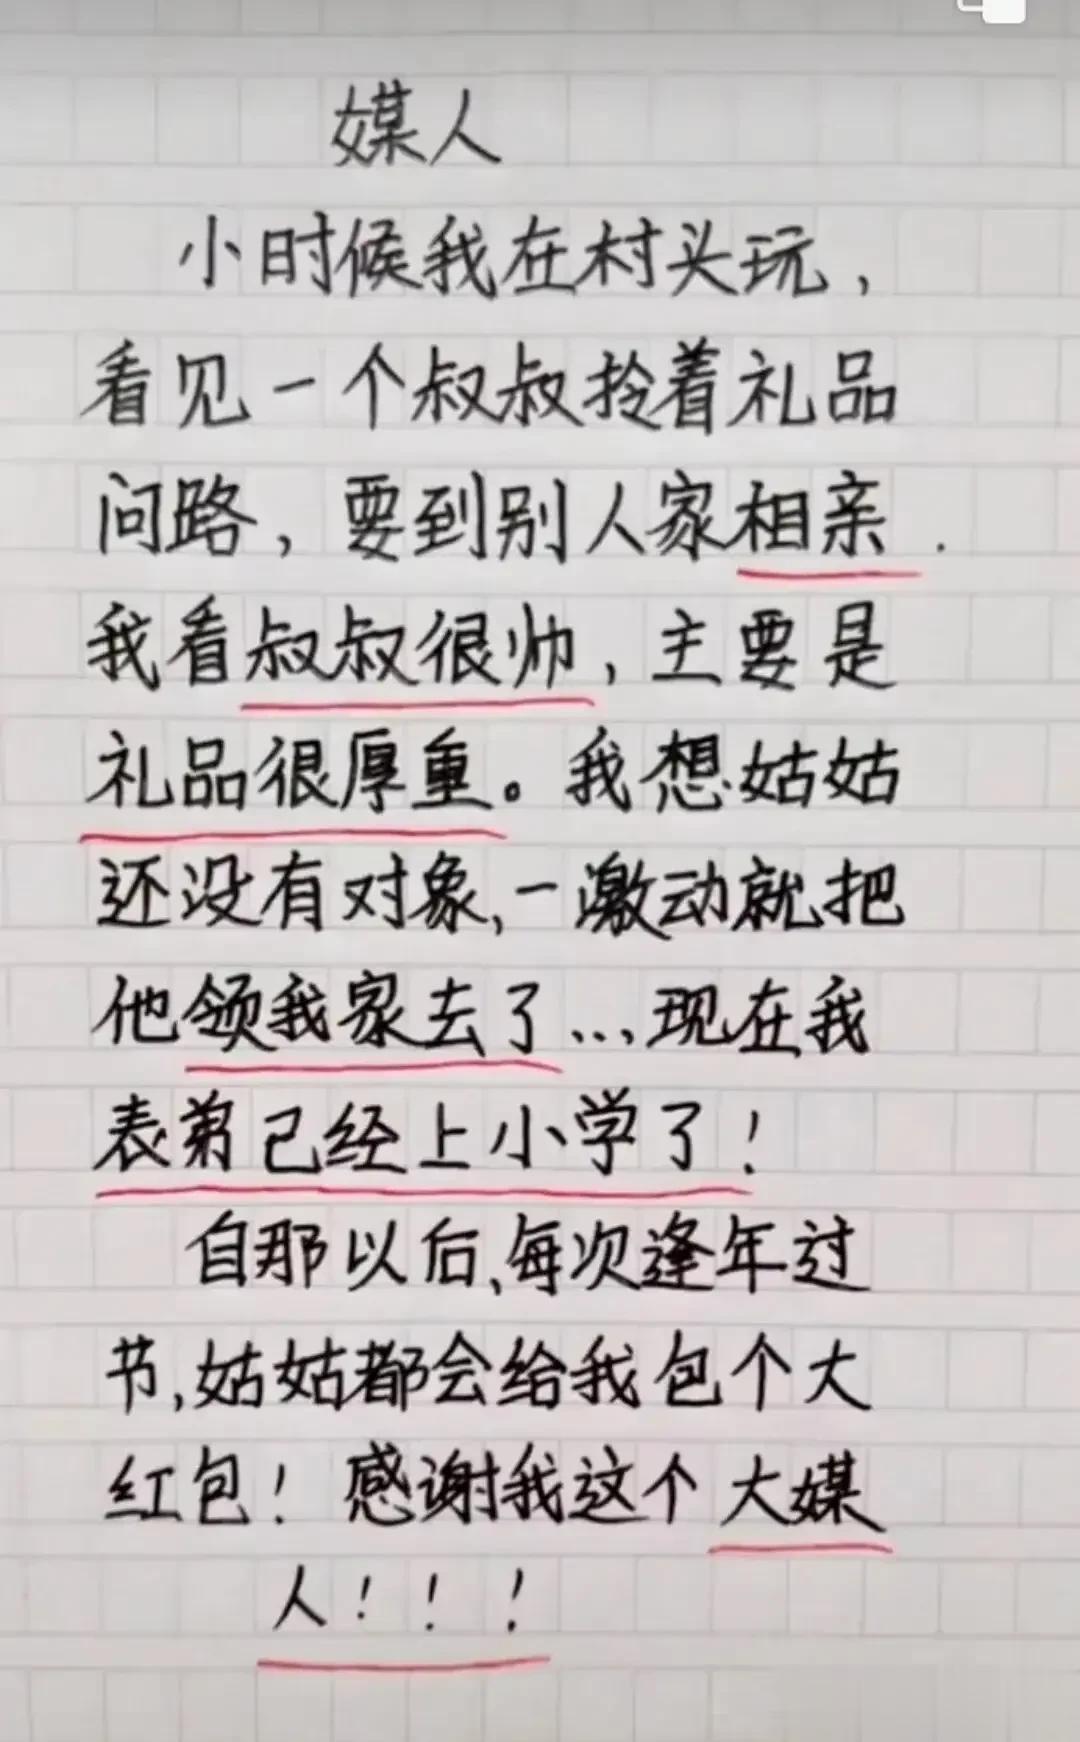 媒人
小时候我在村头玩，
看见一个叔叔拎着礼品
问路，要到别人家相亲.
我看叔叔很帅，主要是
礼品很厚重。我想姑姑
还没有对象，一激动就把
他领我家去了...现在我
表弟已经上小学了！
自那以后，每次逢年过
节，姑姑都会给我包个大
红包！感谢我这个大媒
人！！！